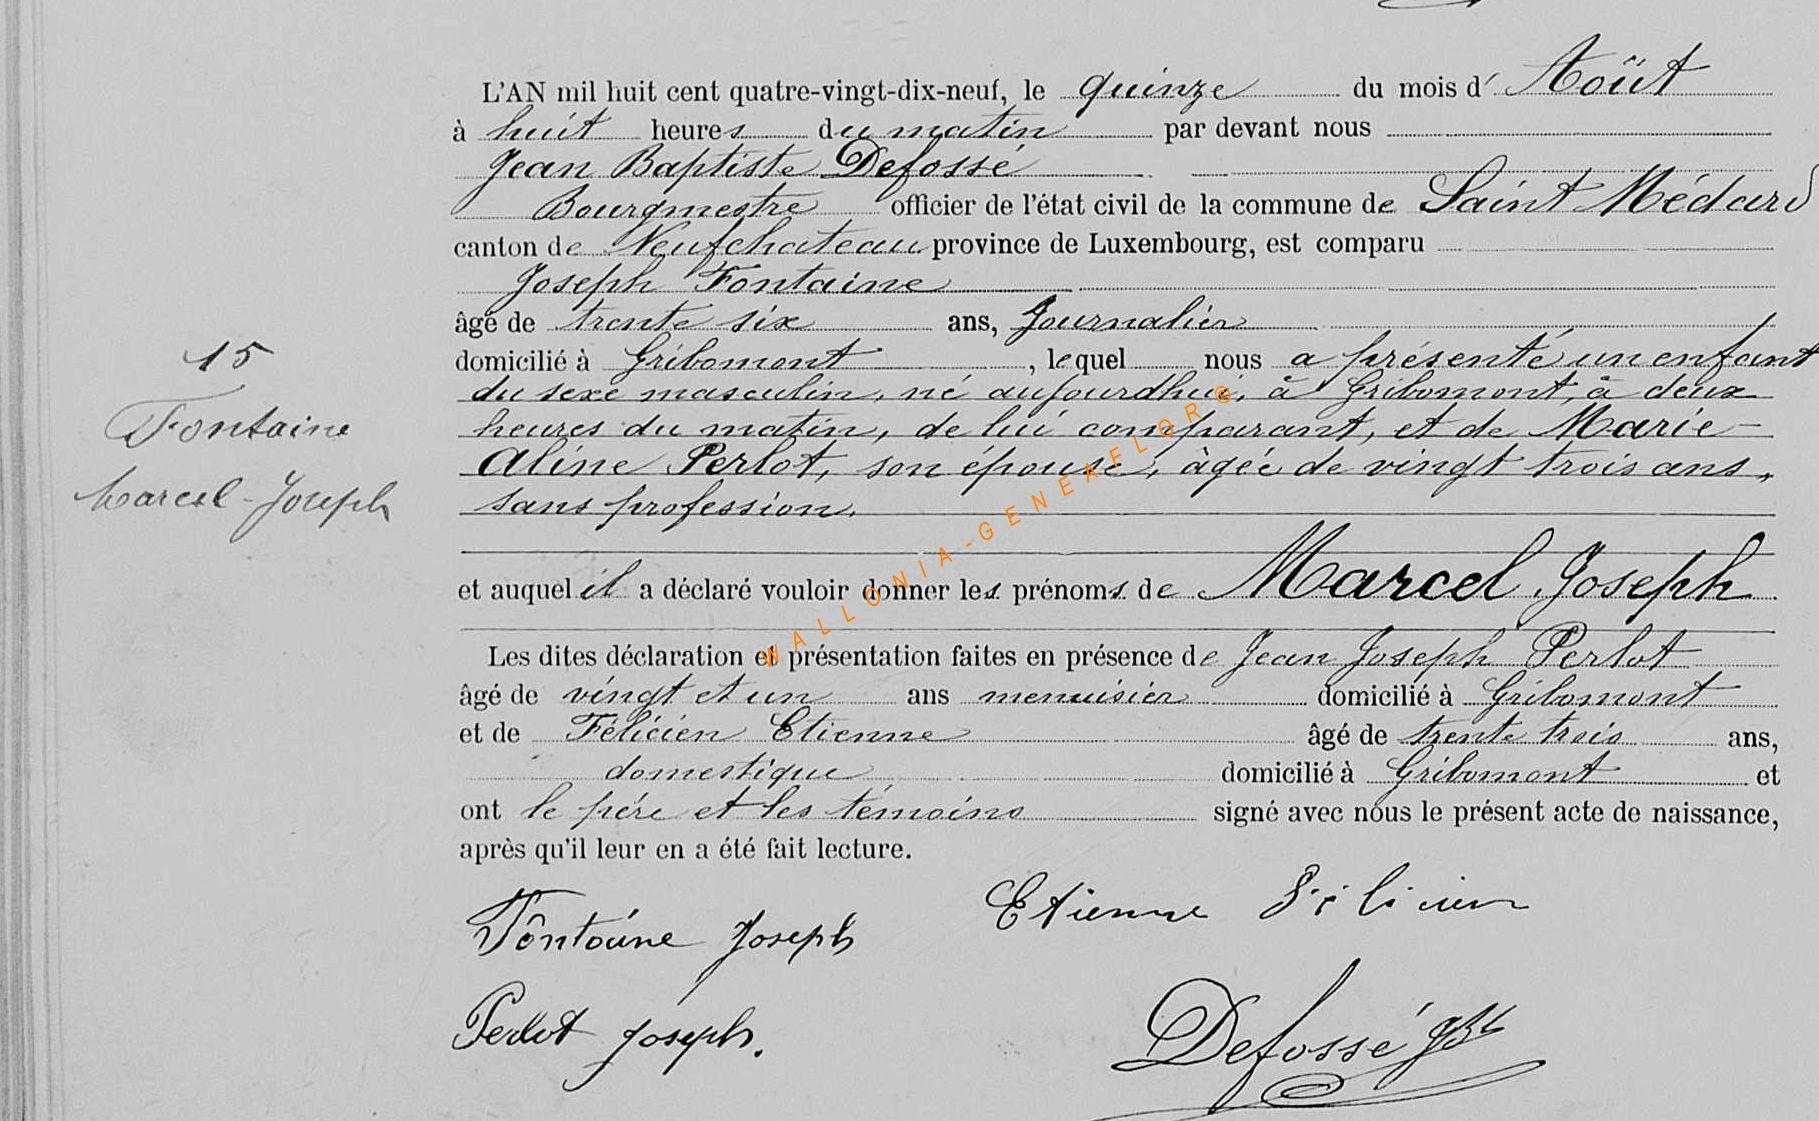 L'AN mil huit cent quatre-vingt-dix-neuf, le quinze du mois d' Aoüt
à huit heures du matin par devant nous
Jean Baptiste Defossé
Bourgmestre officier de l'état civil de la commune de Saint Médard
canton de Neufchateau province de Luxembourg, est comparu
Joseph Fontaine
âgé de trente six ans, Journalier
domicilié à Gribomont, lequel nous a présenté un enfant
du sexe masculin, né aujourdhui, à Gribomont, à deux
heures du matin, de lui comparant, et de Marie-
Aline Perlot, son épouse, âgée de vingt trois ans,
sans profession.
et auquel il a déclaré vouloir donner les prénoms de Marcel Joseph
Les dites déclaration et présentation faites en présence de Jean Joseph Perlot
âgé de vingt et un ans menuisier domicilié à Gribomont
et de Félicien Etienne âgé de trente trois ans,
domestique domicilié à Gribomont et
ont le père et les témoins signé avec nous le présent acte de naissance,
après qu'il leur en a été fait lecture.
15
Fontaine
Marcel-Joseph
Fontaine Joseph
Etienne Félicien
Perlot Joseph.
Defossé JBt
WALLONIA-GENEAFLOR©